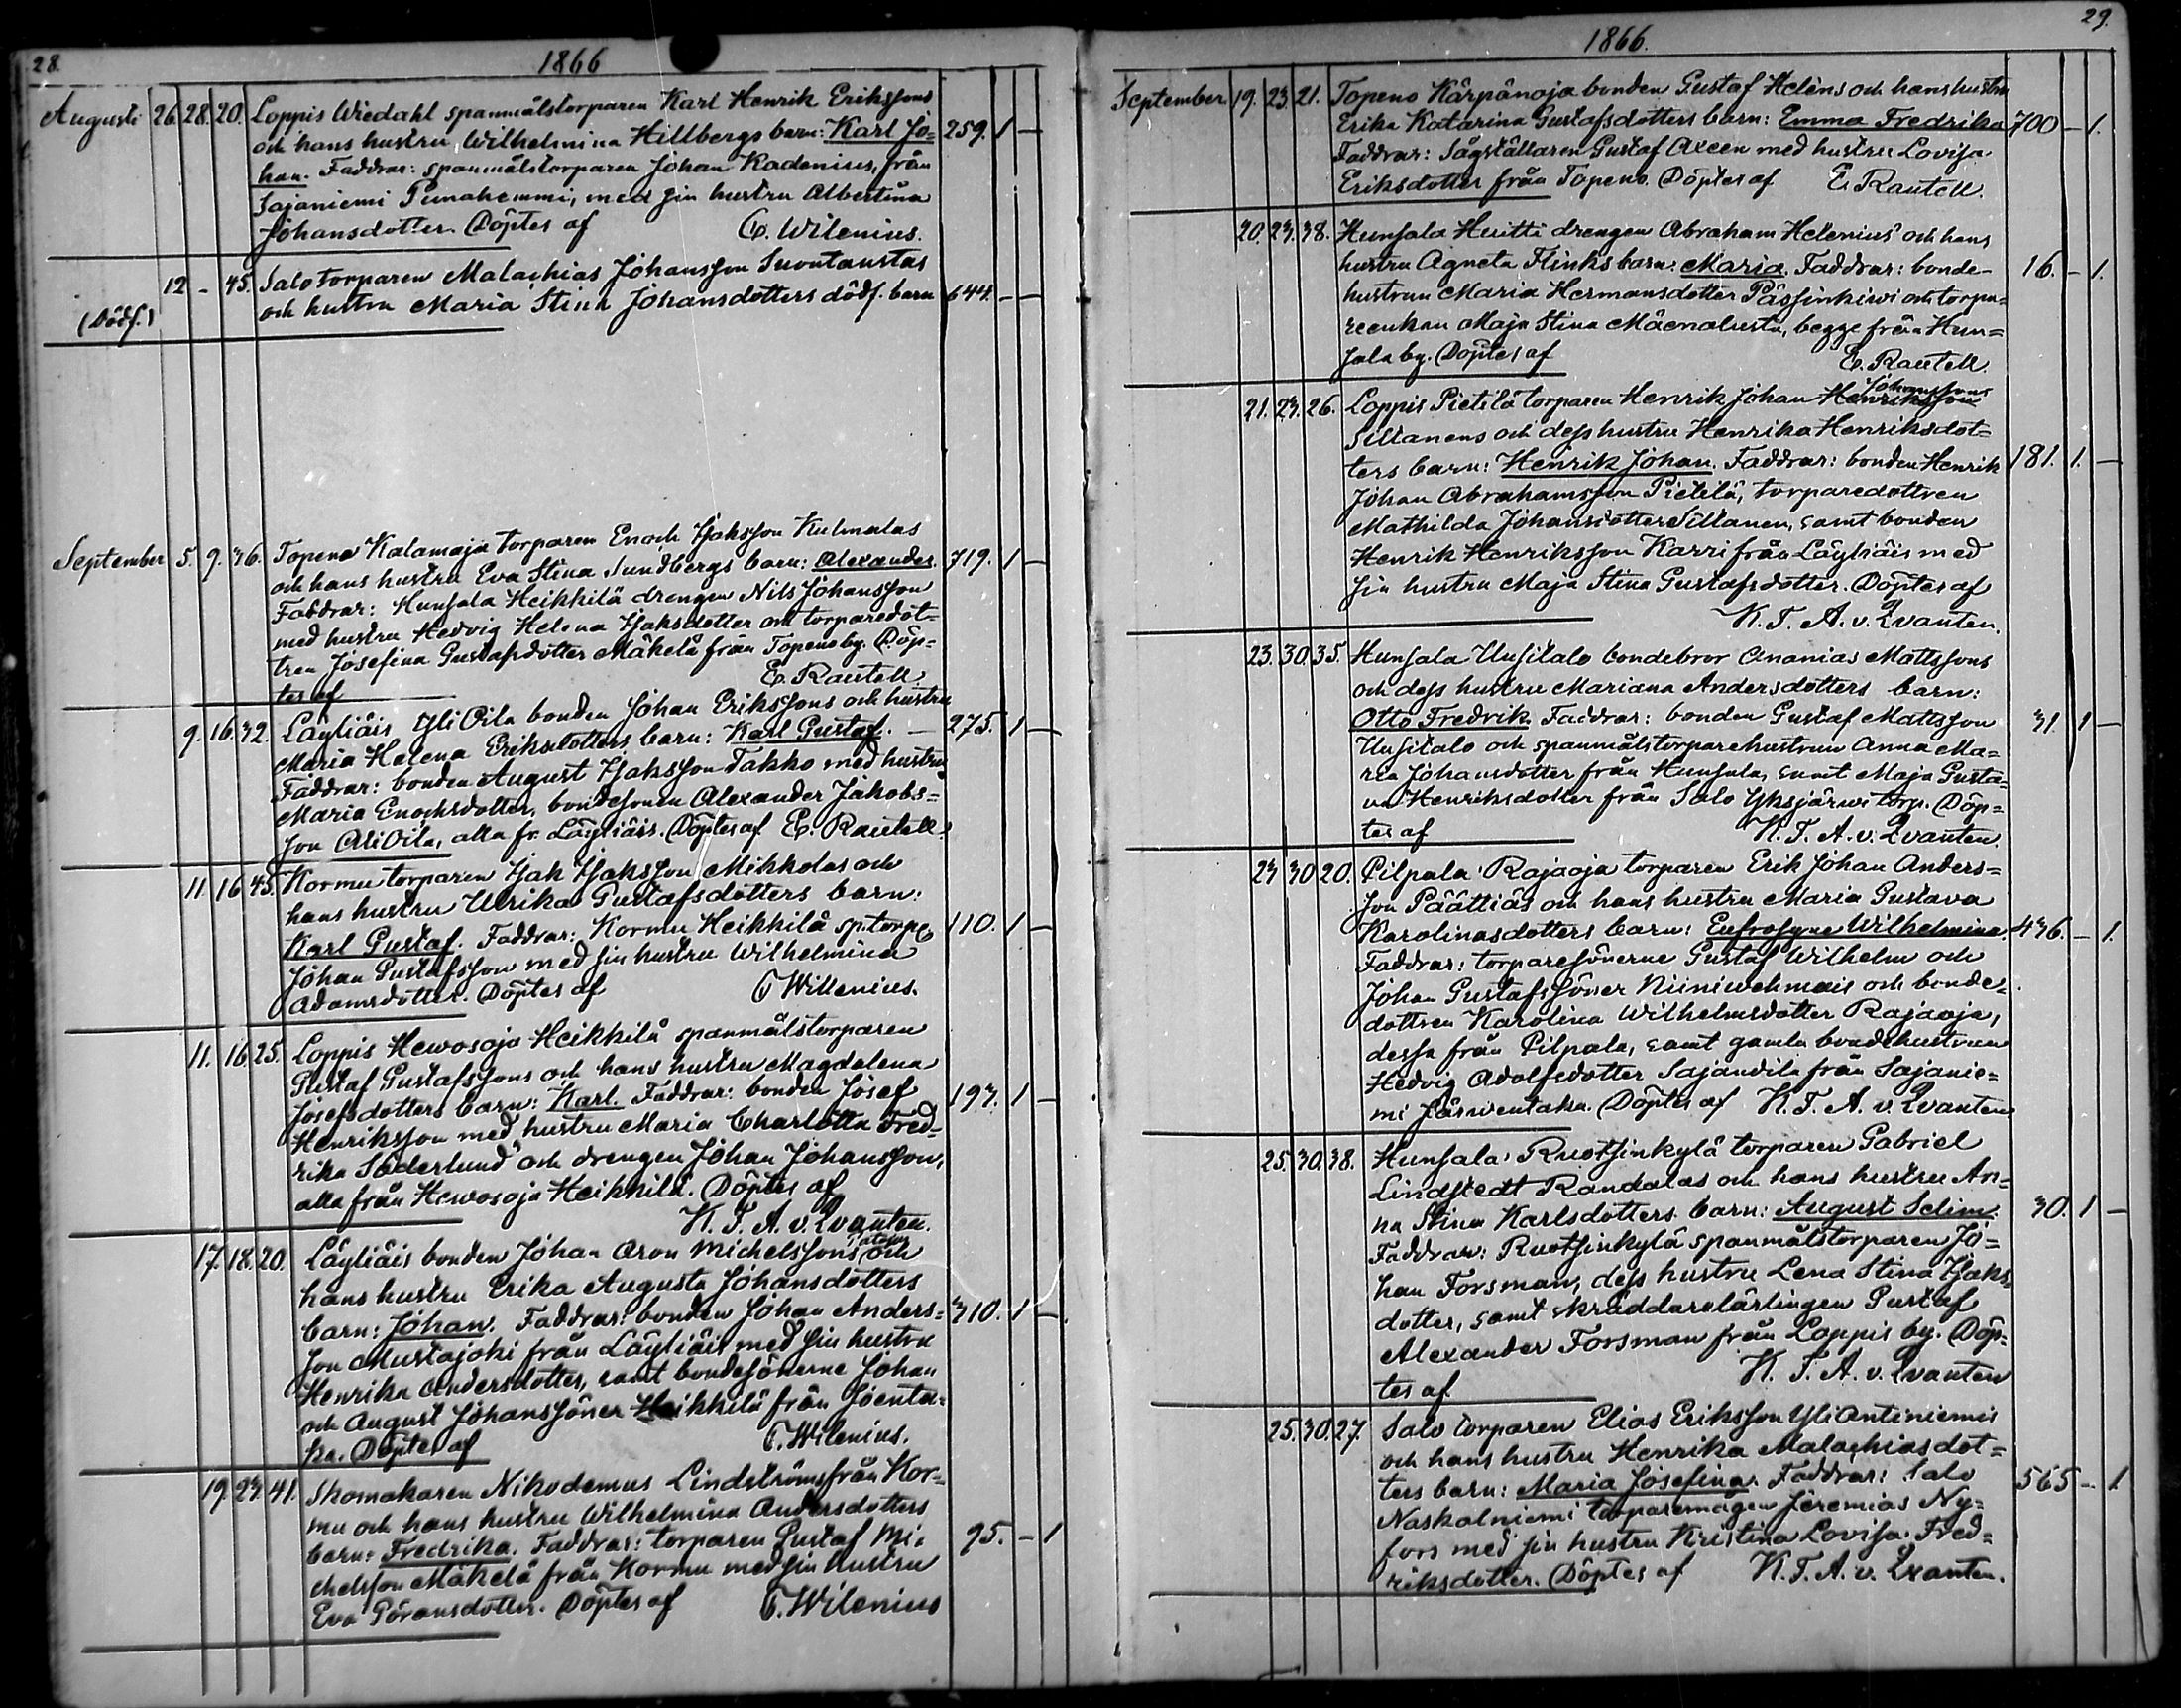 28.
1866
Augusti 26. 28. 20. Loppis Wiedahl spanmålstorparen Karl Henrik Erikssons
och hans hustru Wilhelmina Hillbergs barn: Karl Jo= 259. 1 —
han. Faddrar: spanmålstorparen Johan Kadenius, från
Sajaniemi Punahemmi, med sin hustru Albertina
Johansdotter. Döptes af C. Wilenius.
12 - 45. Salo torparen Malachias Johansson Suontaustas
(Dödf.) och hustru Maria Stina Johansdotters dödf. barn 644. — —
September 5. 9. 36. Topeno Kalamaja torparen Enoch Isaksson Kulmalas
och hans hustru Eva Stina Sundbergs barn: Alexander. 719. 1 —
Faddrar: Hunsala Heikkilä drengen Nils Johansson
med hustru Hedvig Helena Isaksdotter och torparedot=
tren Josefina Gustafsdotter Mäkelä från Topeno by. Döp=
tes af E. Rautell.
9. 16. 32. Läyliäis Yli Oila bonden Johan Erikssons och hustru
Maria Helena Eriksdotters barn: Karl Gustaf. — 275. 1 —
Faddrar: bonden August Isaksson Takko med hustru
Maria Enochsdotter, bondesonen Alexander Jakobs=
son Ali Oila, alla fr. Läyliäis. Döptes af E. Rautell.
11. 16. 45. Kormu torparen Isak Isaksson Mikkolas och
hans hustru Ulrika Gustafsdotters barn:
Karl Gustaf. Faddrar: Kormu Heikkilä sp.torp. 110. 1 —
Johan Gustafsson med sin hustru Wilhelmina
Adamsdotter. Döptes af C Willenius.
11. 16. 25. Loppis Hewosoja Heikkilä spanmålstorparen
Gustaf Gustafssons och hans hustru Magdalena
Josefsdotters barn: Karl. Faddrar: bonden Josef 193. 1 —
Henriksson med hustru Maria Charlotta Fred=
rika Söderlund och drengen Johan Johansson,
alla från Hewosoja Heikkilä. Döptes af
K. T. A. v. Qvanten.
17. 18. 20. Läyliäis bonden Johan Aron Michelssons och
hans hustru Erika Augusta Johansdotters
barn: Johan. Faddrar: bonden Johan Anders= 310. 1 —
son Mustajoki från Läyliäis med sin hustru
Henrika Andersdotter, samt bondesönerne Johan
och August Johanssöner Heikkilä från Joenta=
ka. Döptes af C. Wilenius.
19. 23. 41. Skomakaren Nikodemus Lindströms från Kor=
mu och hans hustru Wilhelmina Andersdotters
barn: Fredrika. Faddrar: torparen Gustaf Mi= 95. — 1
chelsson Mäkelä från Kormu med sin hustru
Eva Göransdotter. Döptes af C. Wilenius
29.
1866.
September 19. 23. 21. Topeno Kärpänoja bonden Gustaf Heléns och hans hustru
Erika Katarina Gustafsdotters barn: Emma Fredrika 700 — 1.
Faddrar: Sågställaren Gustaf Axeen med hustru Lovisa
Eriksdotter från Topeno. Döptes af E. Rautell.
20. 23. 38. Hunsala Huitti drengen Abraham Helenius och hans
hustru Agneta Flinks barn: Maria. Faddrar: bonde- 16. — 1.
hustrun Maria Hermansdotter Pässinkivi och torpa=
reenkan Maja Stina Mäenalusta, begge från Hun=
sala by. Döptes af E. Rautell.
21. 23. 26. Loppis Pietilä torparen Henrik Johan Henrikssons Johanssons
Sillanens och dess hustru Henrika Henriksdot=
ters barn: Henrik Johan. Faddrar: bonden Henrik 181. 1. —
Johan Abrahamsson Pietilä, torparedottren
Mathilda Johansdotter Sillanen, samt bonden
Henrik Henriksson Karri från Läyliäis med
sin hustru Maja Stina Gustafsdotter. Döptes af
K. T. A. v. Qvanten.
23. 30. 35. Hunsala Uusitalo bondebror Ananias Mattssons
och dess hustru Mariana Andersdotters barn:
Otto Fredrik. Faddrar: bonden Gustaf Mattsson 31. 1 —
Uusitalo och spanmålstorparehustrun Anna Ma=
ria Johansdotter från Hunsala, samt Maja Gusta=
va Henriksdotter från Salo Yksjärwi torp. Döp=
tes af K. T. A. v. Qvanten.
23 30 20. Pilpala Rajaoja torparen Erik Johan Anders=
son Päättiäs och hans hustru Maria Gustava
Karolinasdotters barn: Eufrosyne Wilhelmina. 436. — 1.
Faddrar: torparesönerne Gustaf Wilhelm och
Johan Gustafssöner Niiniwehmais och bonde=
dottren Karolina Wilhelmsdotter Rajaoja,
dessa från Pilpala, samt gamla bondehustrun
Hedvig Adolfsdotter Sajandila från Sajanie=
mi Järwentaka. Döptes af K. T. A. v. Qvanten
25. 30. 38. Hunsala Ruotsinkylä torparen Gabriel
Lindstedt Randalas och hans hustru An=
na Stina Karlsdotters barn: August Selim. 30. 1 —
Faddrar: Ruotsinkylä spanmålstorparen Jo=
han Forsman, dess hustru Lena Stina Isaks
dotter, samt skräddarelärlingen Gustaf
Alexander Forsman från Loppis by. Döp=
tes af K. T. A. v. Qvanten
25. 30. 27. Salo torparen Elias Eriksson Yli Antiniemis
och hans hustru Henrika Malachiasdot=
ters barn: Maria Josefina. Faddrar: Salo 565 — 1
Naskalniemi torparemågen Jeremias Ny=
fors med sin hustru Kristina Lovisa Fred=
riksdotter. Döptes af K. T. A. v. Qvanten.